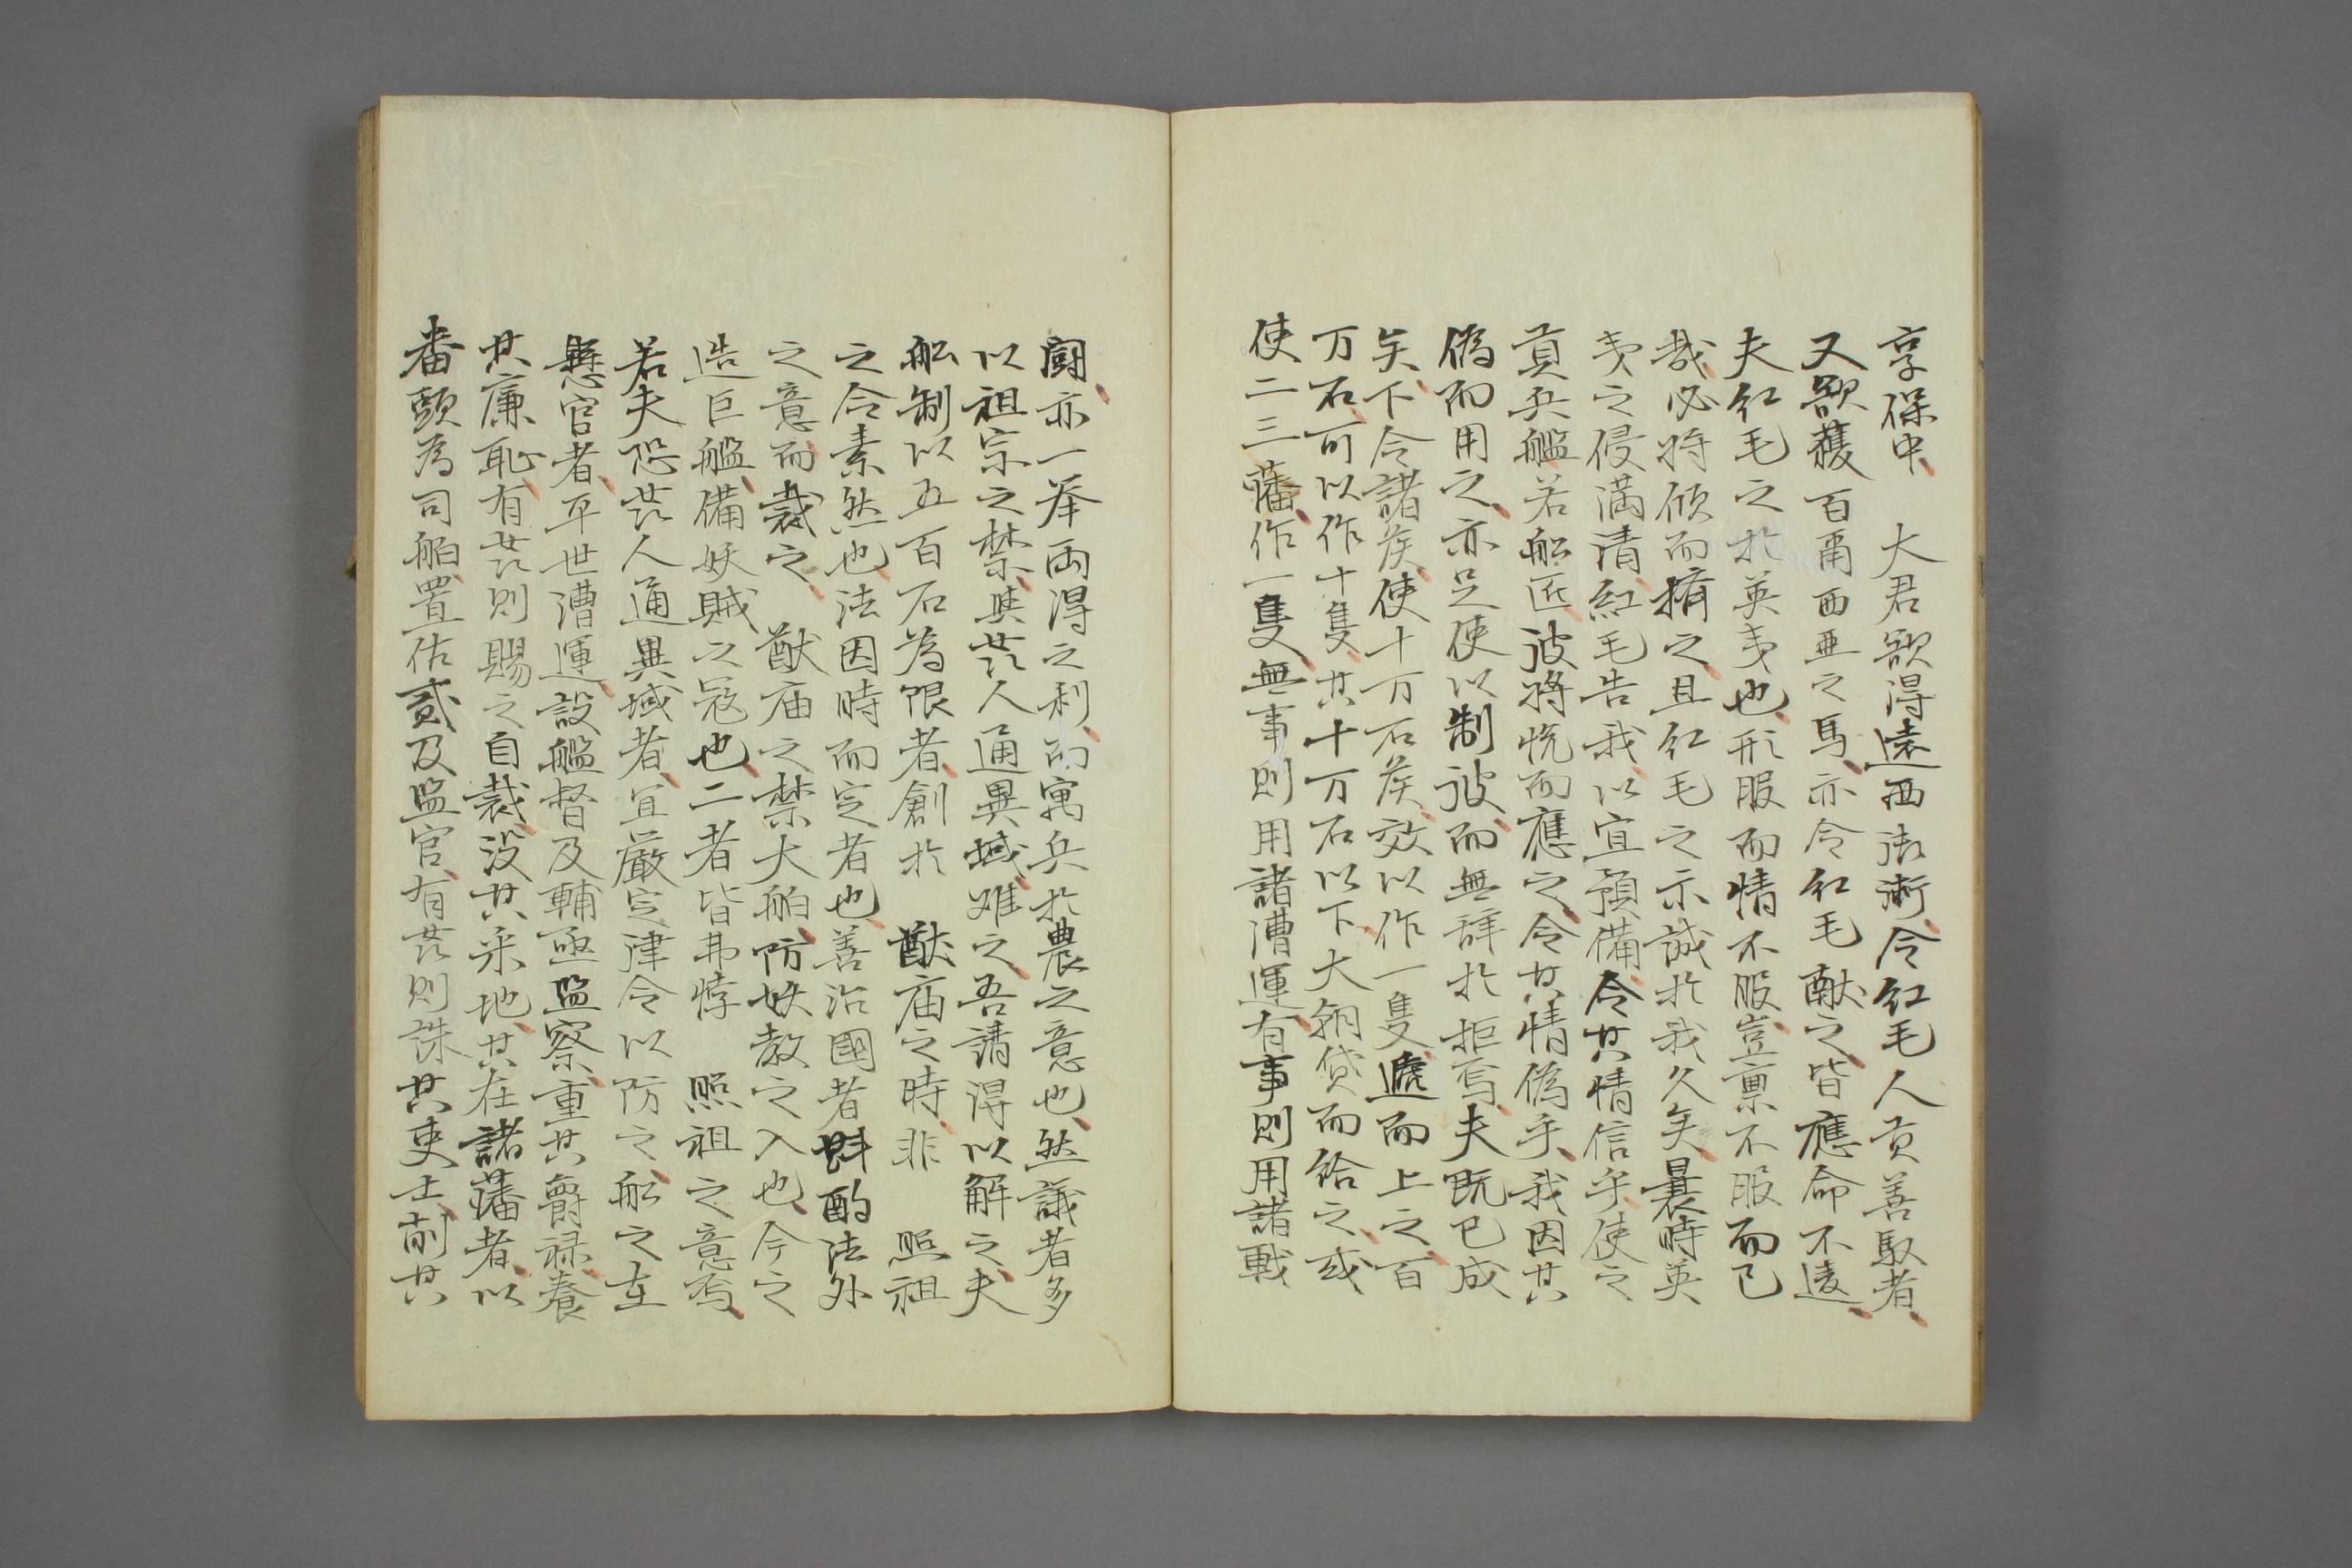 享保中　大君欲得遠西馭術令紅毛人貢善馭者
又欲獲百爾西亜之馬亦令紅毛献之皆應命不逺
夫紅毛之於英夷也形服而情不服豈稟不服而已
哉必将傾而擠之且紅毛之示誠於我久矣曩時英
夷之侵満清紅毛告我以宜預備令其情信乎使之
貢兵艦若舩匠彼将悦而應之令其情偽乎我因其
偽而用之亦足使以制彼而無辞於拒焉夫既已成
矣下令諸侯使十万石侯效以作一隻遞而上之百
万石可以作十隻其十万石以下大朔貸而給之或
使二三藩作一隻無事則用諸漕運有事則用諸戦
闘亦一挙両得之利而寓兵於農之意也然議者多
以祖宗之禁與芸人通異域难之吾請得以解之夫
舩制以五百石為限者創於　猷庙之時非　照祖
之令素然也法因時而定者也善治國者斟酌法外
之意而裁之　猷庙之禁大舶防妖教之入也今之
造巨艦備妖賊之冦也二者皆弗悖　照祖之意焉
若夫恐芸人通異域者宜厳定津令以防之舩之在
懸官者平世漕運設艦督及輔亟監察重其爵禄養
其廉恥有芸則賜之自裁没其采地其在諸藩者以
番頭為司舶置佐貳及监官有芸則誅其吏士削其